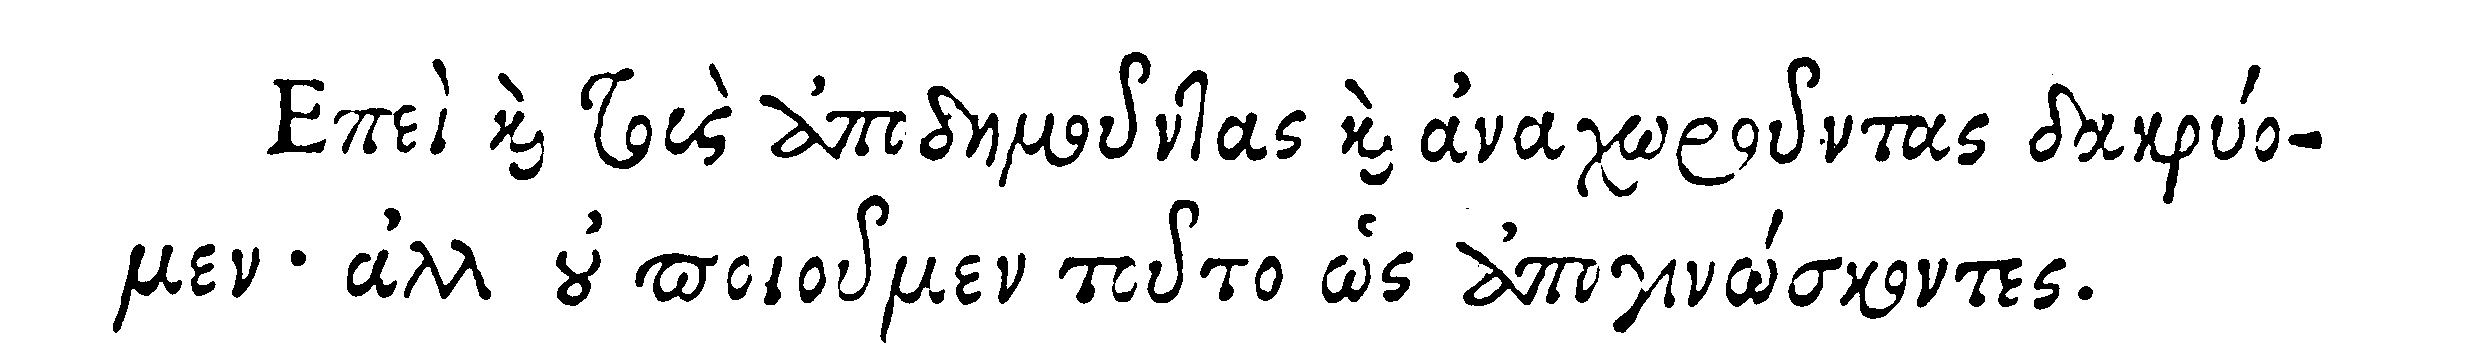 Επεὶ ϗ̀ τοὺς ἀποδημοῦντας ϗ̀ ἀναχωροῦντας δακρύο-
μεν· ἀλλ ȣ̓ ποιοῦμεν τοῦτο ὡς ἀπογινώσκοντες.